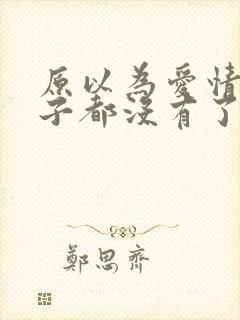 原以為愛情
子都沒有了
鄭思齊